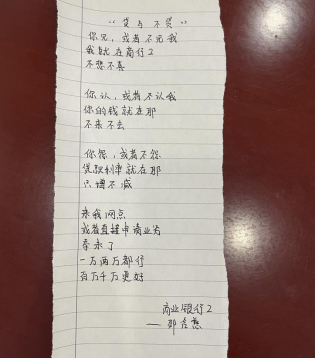 “贷与不贷”
你见，或者不见我
我就在商行2
不悲不喜
你认，或者不认我
你的钱就在那
不来不去
你怨，或者不怨
贷款利率就在那
只增不减
来我网点
或者直接申请业务
拿来了
一万两万都行
百万千万更好
商业银行2